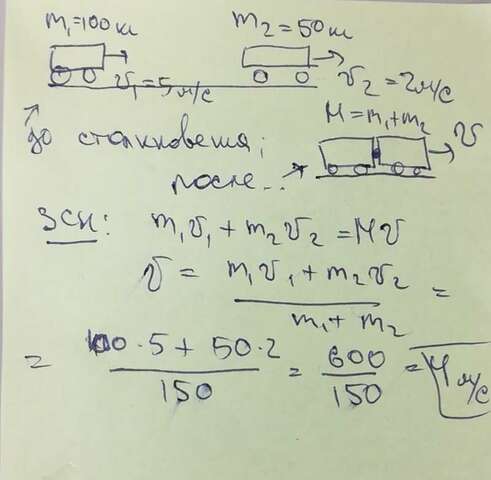 m₁=100кг m₂=50кг
v₁=5м/с v₂=2м/с
M=m₁+m₂ v
до столкновения;
после..
ЗСИ: m₁v₁+m₂v₂=Mv
v = (m₁v₁+m₂v₂)/(m₁+m₂) =
= (100·5+50·2)/150 = 600/150 = 4м/с